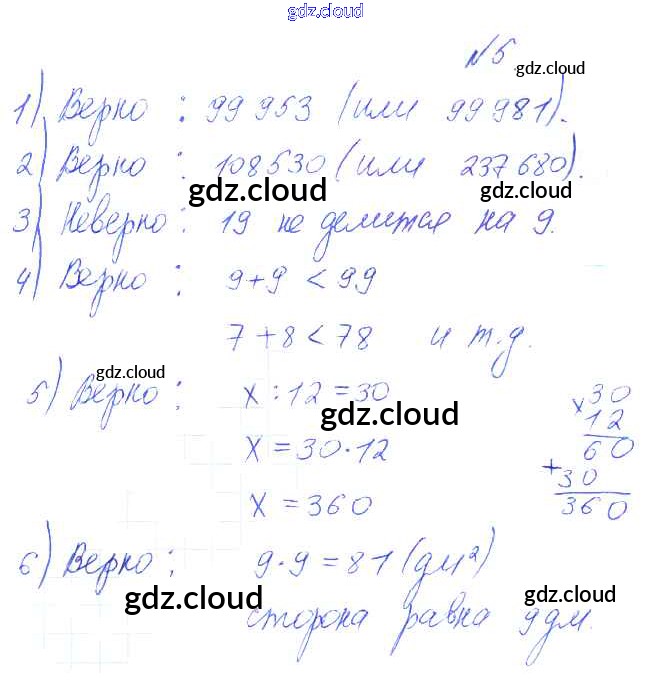 gdz.cloud
№5 gdz.cloud
1) Верно : 99 953 (или 99 981).
2) Верно : 108 530 (или 237 680).
gdz.cloud gdz.cloud
3) Неверно : 19 не делится на 9.
4) Верно : 9+9 < 99
7+8 < 78 и т.д.
gdz.cloud
5) Верно : x : 12 = 30
gdz.cloud
x = 30·12
x = 360
× 30
12
60
+ 30
360
6) Верно : 9·9 = 81 (дм²)
gdz.cloud gdz.cloud
сторона равна 9 дм.
gdz.cloud